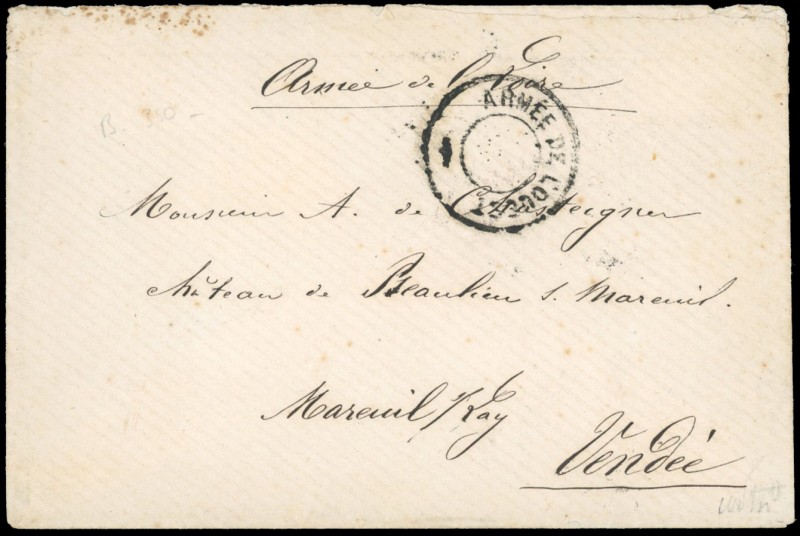 Armée de l'Loire
ARMÉE DE L'OUEST
B 350 -
Monsieur A. de Chasteigner
château de Beaulieu s. Mareuil.
Mareuil s/Lay
Vendée